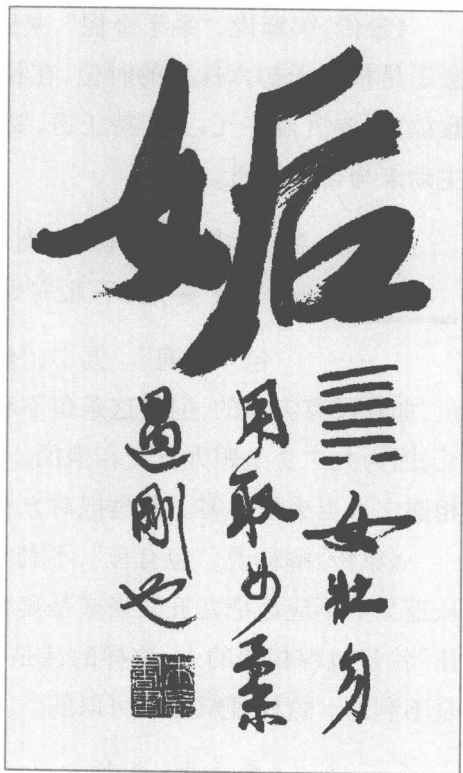 姤
䷫女壯勿
用取女柔
遇剛也